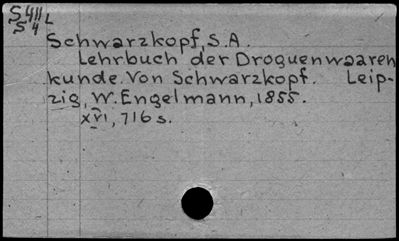 S411L
S4
Schwarzkopf, S.A.
Lehrbuch der Droguenwaaren
kunde. Von Schwarzkopf. Leip-
zig, W. Engelmann, 1855.
xvi, 716 s.